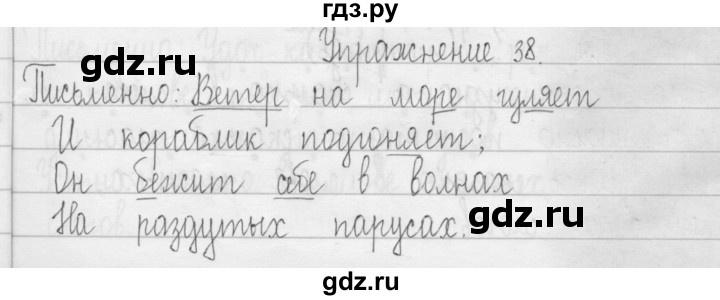 гдз.ру
Упражнение 38.
gdz.ru
Письменно: Ветер на море гуляет
И кораблик подгоняет;
Он бежит себе в волнах
На раздутых парусах.
gdz.ru
gdz.ru